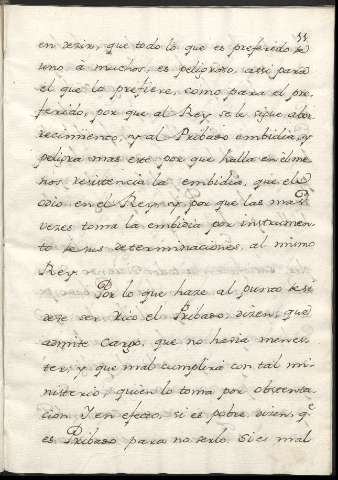 55
en dezir, que todo lo que es preferido de
uno á muchos, es peligroso, assi para
el que lo prefiere, como para el pre-
ferido, por que al Rey se le sigue abor-
recimiento, y al Pribado embidia, y
peligra mas este por que halla en él me-
nos resistencia la embidia, que el
Odio en el Rey, y por que las mas
vezes toma la embidia por instrumen-
to de sus determinaciones, al mismo
Rey.
Por lo que haze al punto de si
deve ser rico el Pribado, dizen, que
admite Cargo, que no havia menes-
ter, y que mal cumplirá con tal mi-
nisterio, quien lo toma por obstenta-
cion. Y en efecto, si es pobre, dizen, q.e
es Pribado para no serlo. Si es mal